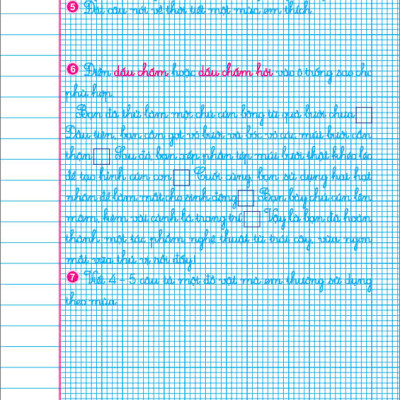 5 Đặt câu nói về thời tiết một mùa em thích.
6 Điền dấu chấm hoặc dấu chấm hỏi vào ô trống sao cho
phù hợp.
Bạn đã thử làm một chú cún bông từ quả bưởi chưa
Đầu tiên, bạn cần gọt vỏ bưởi và bóc vỏ các múi bưởi cẩn
thận Sau đó, bạn xếp phần tép múi bưởi thật khéo léo
để tạo hình cún con Cuối cùng, bạn sử dụng hai hạt
nhãn để làm mắt cho sinh động Bạn bày chú cún lên
mâm, kèm vài cành lá trang trí Vậy là bạn đã hoàn
thành một tác phẩm nghệ thuật từ trái cây, vừa ngon
mắt vừa thú vị rồi đấy!
7 Viết 4 - 5 câu tả một đồ vật mà em thường sử dụng
theo mùa.